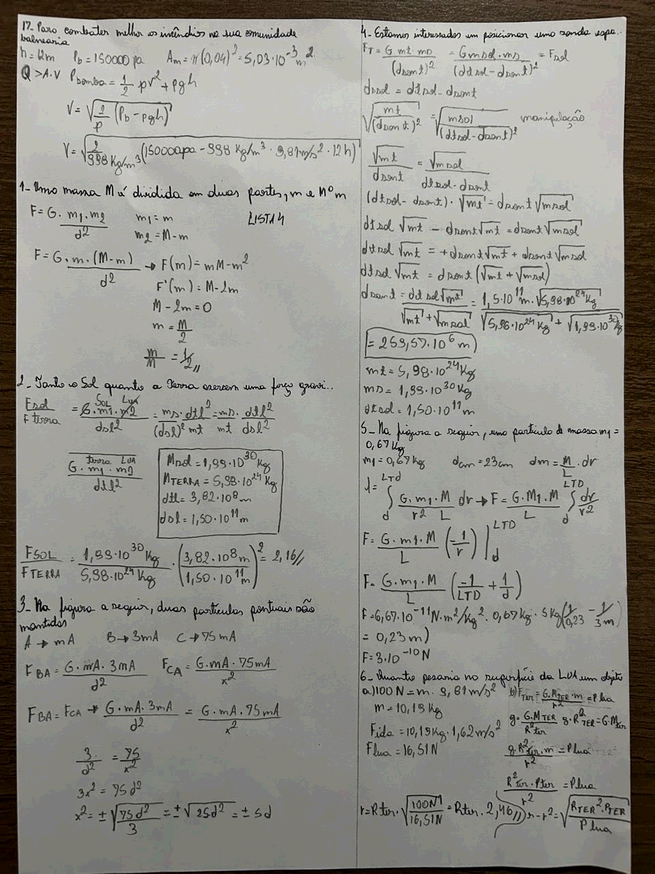 17. Para combater melhor os incêndios na sua comunidade
balnearia
h = 12m  Pb = 150000 pa  Am = π(0,04)² = 5,03·10⁻³ m²
Q > A·V  Pbomba = 1/2 ρv² + ρgh
V = √(2/ρ (Pb - ρgh))
V = √(2/998 Kg/m³ (150000pa - 998 Kg/m³ · 9,81m/s² · 12h))
1. Uma massa M é dividida em duas partes, m e M° m
F = G · m1 · m2 / d²  m1 = m  LISTA 4
m2 = M - m
F = G · m · (M - m) / d² → F(m) = mM - m²
F'(m) = M - 2m
M - 2m = 0
m = M/2
m/M = 1/2 //
2. Tanto o Sol quanto a Terra exercem uma força gravi..
Fsol / Fterra = G · m1 · m2 / dsl² = ms · dtl² / (dsl)² mt = ms/mt · dtl²/dsl²
Sol Lua
terra LUA
G · m1 · m2 / dtl²
Msol = 1,99·10³⁰ Kg
MTERRA = 5,98·10²⁴ Kg
dtl = 3,82·10⁸ m
dsl = 1,50·10¹¹ m
FSOL / FTERRA = 1,99·10³⁰ Kg / 5,98·10²⁴ Kg · (3,82·10⁸ m / 1,50·10¹¹ m)² = 2,16 //
3. Na figura a seguir, duas particulas pontuais são
mantidas
A → mA  B → 3mA  C → 75mA
FBA = G · mA · 3mA / d²  FCA = G · mA · 75mA / x²
FBA = FCA → G · mA · 3mA / d² = G · mA · 75mA / x²
3/d² = 75/x²
3x² = 75d²
x² = ±√(75d²/3) = ±√(25d²) = ±5d
4. Estamos interessados em posicionar uma sonda espa..
FT = G mt · ms / (dsont)² = G msol · ms / (dtsol - dsont)² = Fsol
dssol = dtsol - dsont
√(mt / (dsont)²) = √(msol / (dtsol - dsont)²)  manipulação
√mt / dsont = √msol / dtsol - dsont
(dtsol - dsont) · √mt = dsont √msol
dtsol √mt - dsont √mt = dsont √msol
dtsol √mt = + dsont √mt + dsont √msol
dtsol √mt = dsont (√mt + √msol)
dsont = dtsol √mt / √mt + √msol = 1,5·10¹¹ m · √5,98·10²⁴ Kg / √5,98·10²⁴ Kg + √1,99·10³⁰ Kg
= 259,57·10⁶ m
mt = 5,98·10²⁴ Kg
ms = 1,99·10³⁰ Kg
dtsol = 1,50·10¹¹ m
5. Na figura a seguir, uma particula de massa m1 =
0,67 Kg
m1 = 0,67 Kg  dcm = 23cm  dm = M/L · dr
∫ d LTd G · m1 · M / r² L dr → F = G · M1 · M / L ∫ d LTD dr/r²
F = G · m1 · M / L (-1/r) | d LTD
F = G · m1 · M / L (-1/LTD + 1/d)
F = 6,67·10⁻¹¹ N·m²/Kg² · 0,67 Kg · 5Kg (1/0,23 - 1/3m)
= 0,23 m)
F = 3·10⁻¹⁰ N
6. Quanto pesaria na superficie da LUA um objeto
a) 100 N = m · 9,81 m/s²  b) FTer = G · MTER · m / r² = Plua
m = 10,19 Kg  g · G · MTER / R²TER  g · R²TER = G · MTer
Flua = 10,19 Kg · 1,62 m/s²
Flua = 16,51 N  g · R²Ter · m / r² = Plua
R²Ter · PTer / r² = Plua
r = RTer · √(100N / 16,51N) = RTer · 2,46 //  r = r² = √(RTER² · PTER / Plua)